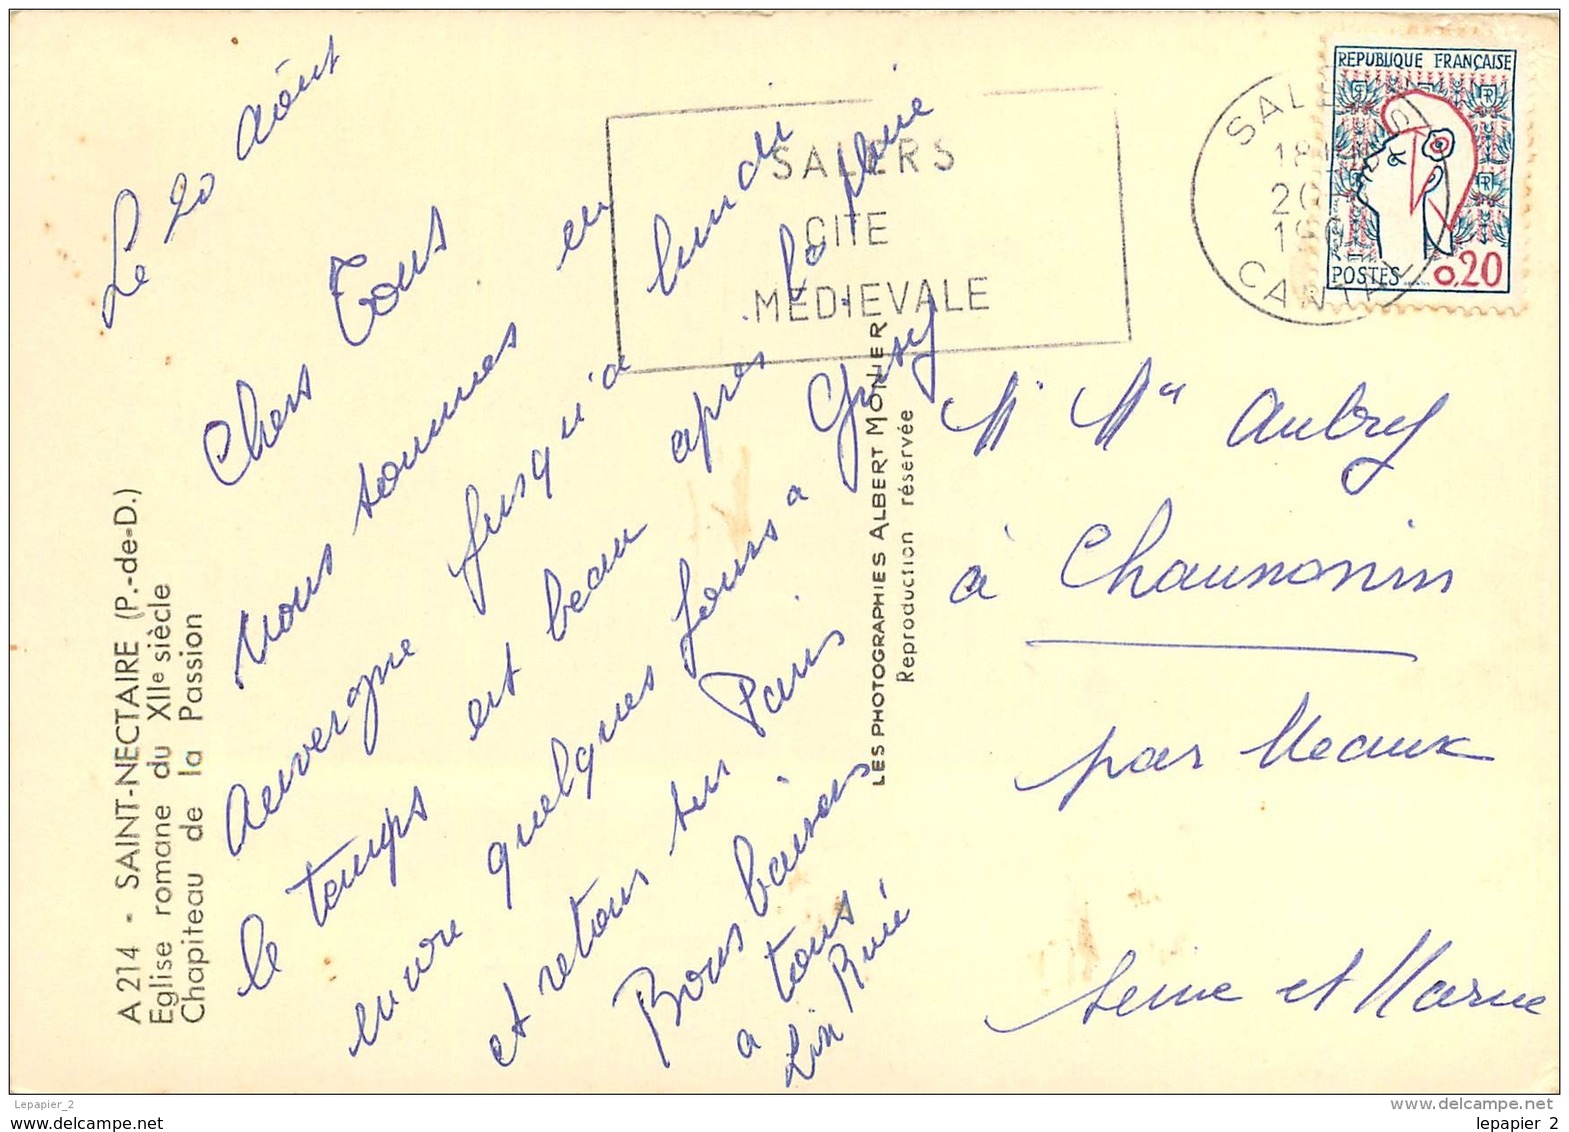 Le 20 août
Chers Tous
Nous sommes en
Auvergne jusqu'a lundi
le temps est beau apres la pluie
encore quelques jours a Grisy
et retour sur Paris
Bons baisers
a tous
René
A 214 - SAINT-NECTAIRE (P.-de-D.)
Eglise romane du XIIe siècle
Chapiteau de la Passion
LES PHOTOGRAPHIES ALBERT MONIER
Reproduction réservée
SALERS
CITE
MEDIEVALE
18H
20
CANTAL
REPUBLIQUE FRANÇAISE
POSTES 0,20
Mr Mme Aubry
à
par Meaux
Seine et Marne
Lepapier_2
www.delcampe.net
lepapier_2
www.delcampe.net
lepapier_2